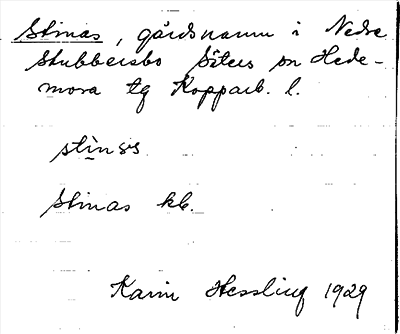 Stinas, gårdsnamn i Nedre
Stubbersbo Säters sn Hede-
mora tg Kopparb. l.
stinas
Stinas kb.
Karin Hessling 1929